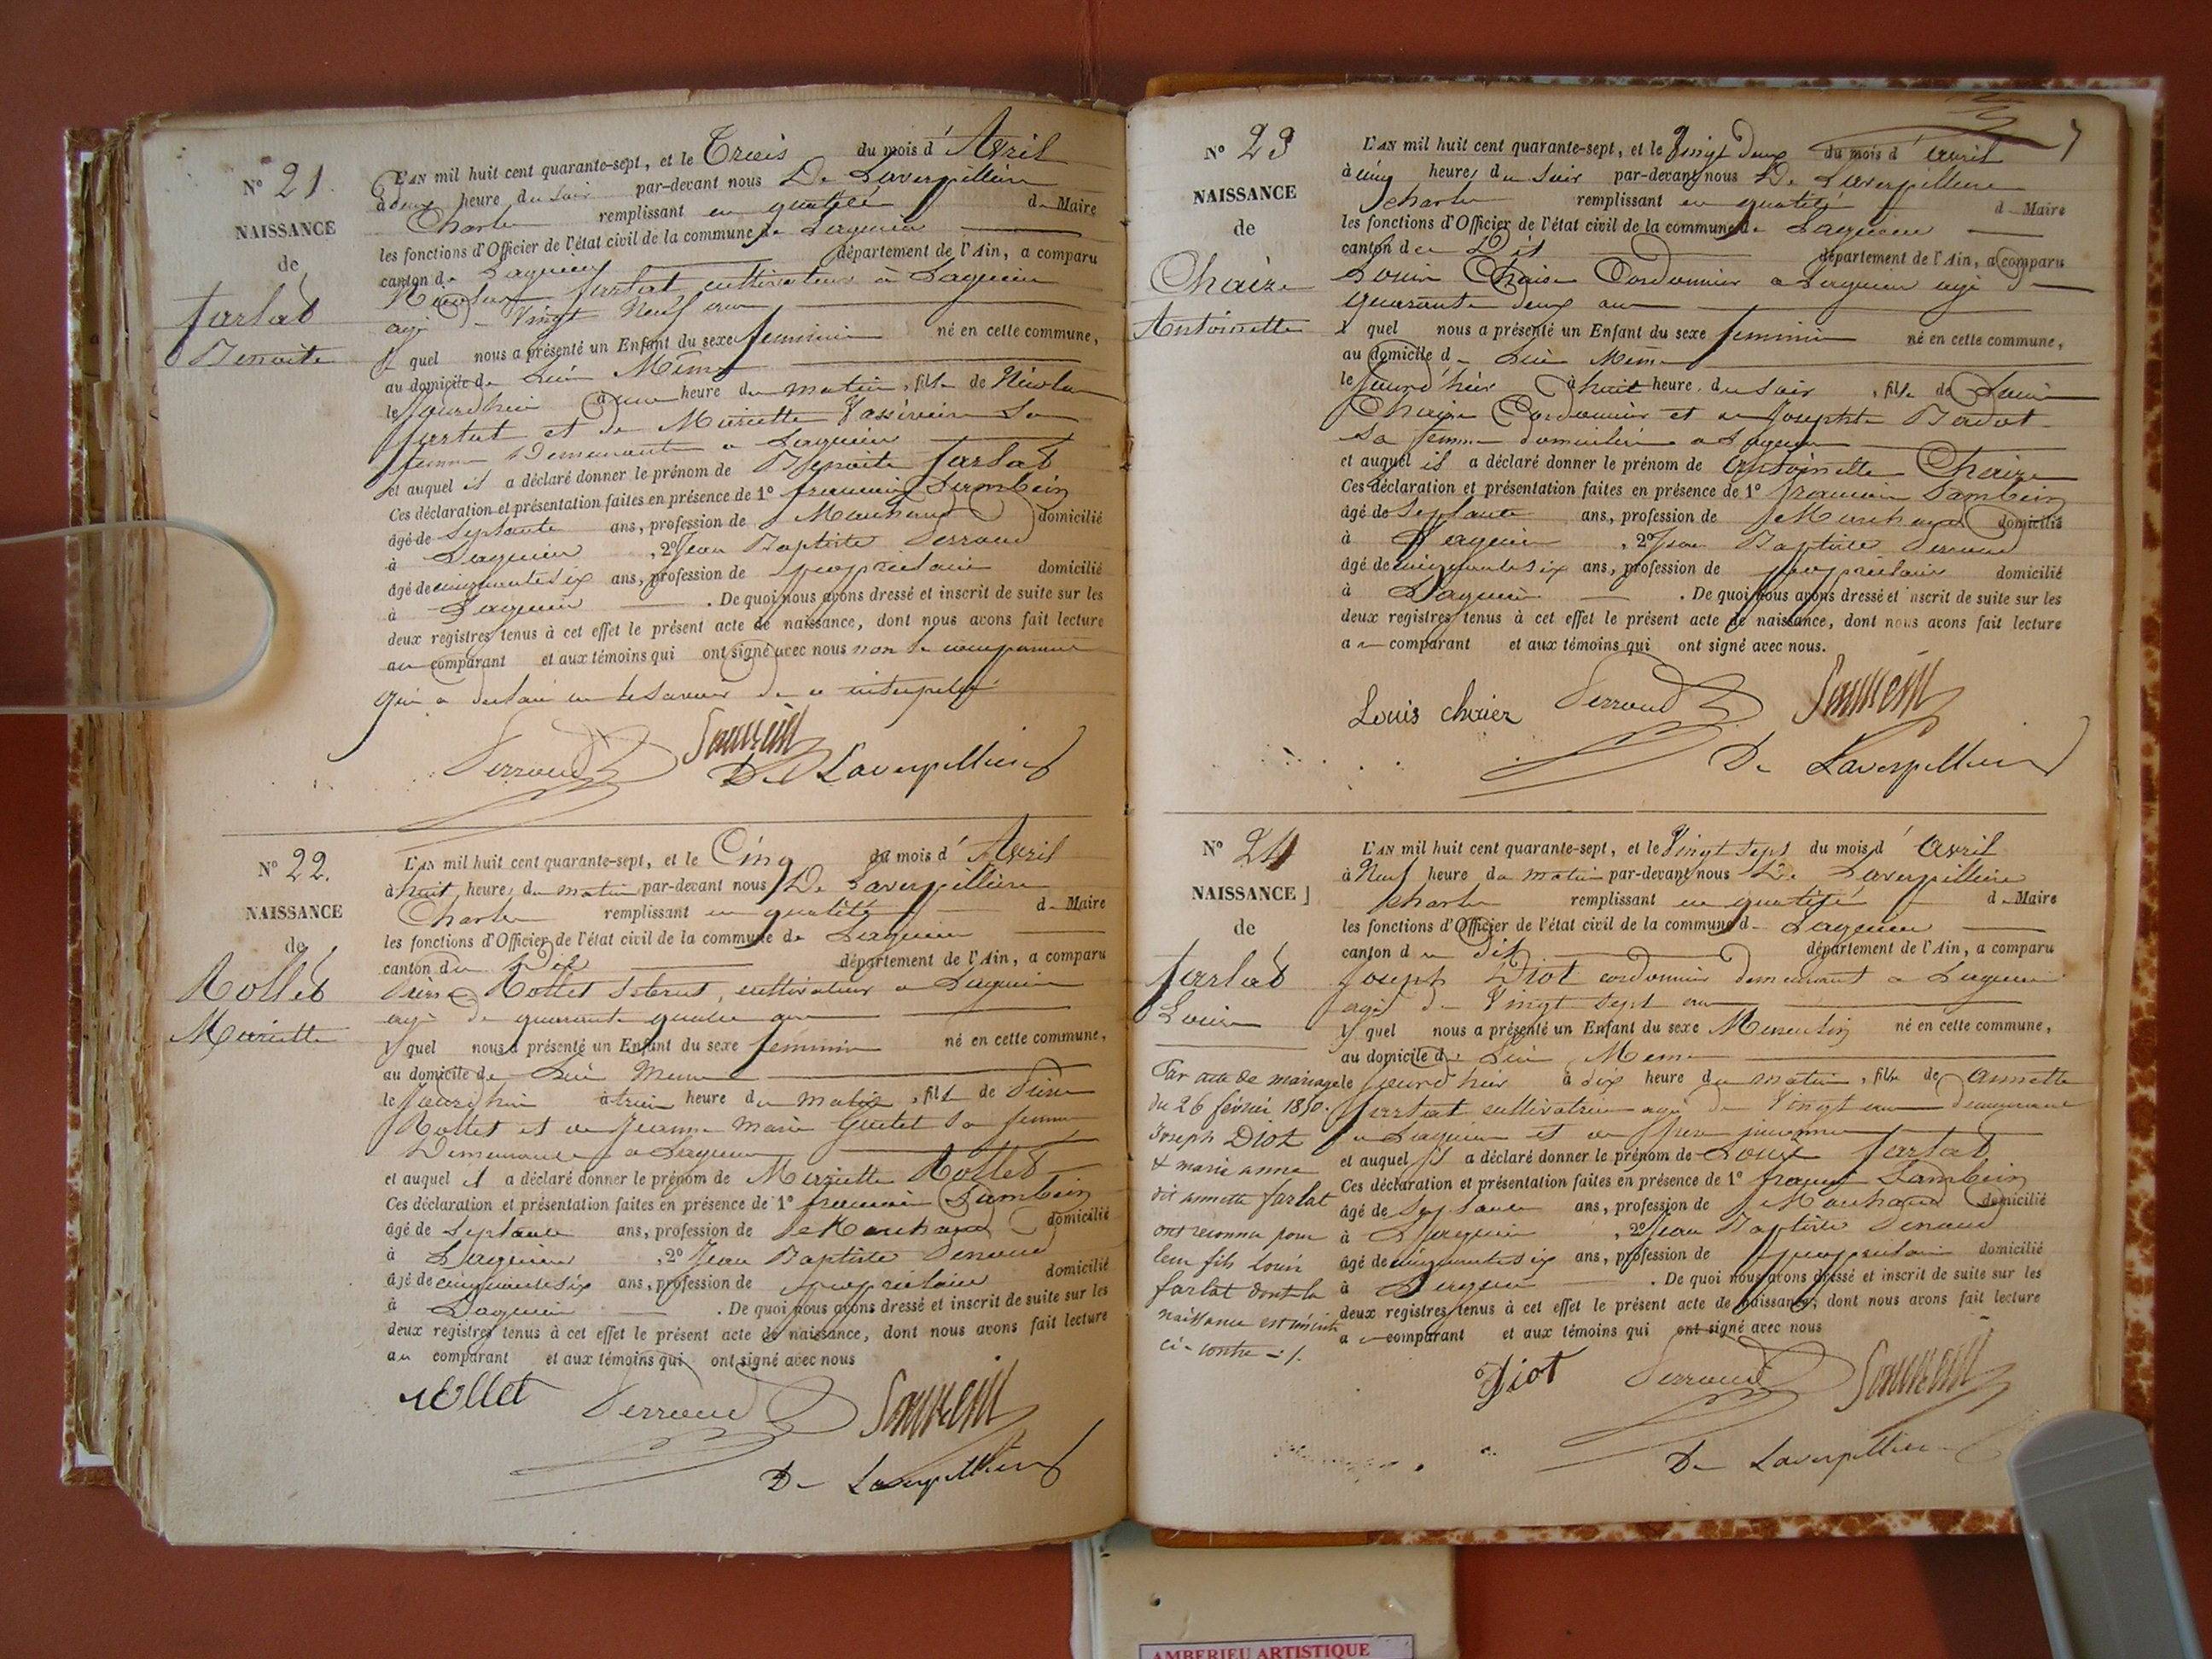 N° 21.
NAISSANCE
de
farlat
Benoite
L'AN mil huit cent quarante-sept, et le Trois du mois d'Avril
à deux heure du soir par-devant nous De Laverpillière
Charles remplissant en qualité de Maire
les fonctions d'Officier de l'état civil de la commune de Lagnieu
canton de Lagnieu département de l'Ain, a comparu
farlat cultivateur à Lagnieu
agé de Vingt Neuf ans
quel nous a présenté un Enfant du sexe feminin né en cette commune,
au domicile de Lui Meme
le jourdhui à une heure du matin, fille de Nicolas
farlat et de Mariette sa
femme Demeurant a Lagnieu
et auquel il a déclaré donner le prénom de Benoite farlat
Ces déclaration et présentation faites en présence de 1° francois
âgé de Septante ans, profession de Marchand domicilié
à Lagnieu, 2° Jean Baptiste Perroud
âgé de cinquante six ans, profession de propriétaire domicilié
à Lagnieu. De quoi nous avons dressé et inscrit de suite sur les
deux registres tenus à cet effet le présent acte de naissance, dont nous avons fait lecture
au comparant et aux témoins qui ont signé avec nous non le comparant
qui a de ce
Perroud
De Laverpillière
N° 22.
NAISSANCE
de
Rollet
Mariette
L'AN mil huit cent quarante-sept, et le Cinq du mois d'Avril
à huit heures du matin par-devant nous De Laverpillière
Charles remplissant en qualité de Maire
les fonctions d'Officier de l'état civil de la commune de Lagnieu
canton du Dit département de l'Ain, a comparu
Rollet, cultivateur a Lagnieu
agé de quarante quatre ans
quel nous a présenté un Enfant du sexe feminin né en cette commune,
au domicile de Lui Meme
le jourdhui à trois heure du matin, fille de
Rollet et de Jeanne Marie sa femme
Demeurant a Lagnieu
et auquel il a déclaré donner le prénom de Mariette Rollet
Ces déclaration et présentation faites en présence de 1° francois
âgé de Septante ans, profession de Marchand domicilié
à Lagnieu, 2° Jean Baptiste Perroud
âgé de cinquante six ans, profession de propriétaire domicilié
à Lagnieu. De quoi nous avons dressé et inscrit de suite sur les
deux registres tenus à cet effet le présent acte de naissance, dont nous avons fait lecture
au comparant et aux témoins qui ont signé avec nous
Rollet Perroud
De Laverpillière
7
N° 23
NAISSANCE
de
Chaize
Antoinette
L'AN mil huit cent quarante-sept, et le Vingt Deux du mois d'avril
à cinq heures du soir par-devant nous De Laverpillière
Charles remplissant en qualité de Maire
les fonctions d'Officier de l'état civil de la commune de Lagnieu
canton du Dit département de l'Ain, a comparu
Louis Chaize Cordonnier a Lagnieu agé de
quarante deux ans
quel nous a présenté un Enfant du sexe feminin né en cette commune,
au domicile de Lui Meme
le jourd'hui à huit heure du soir, fille de Louis
Chaize Cordonnier et de Josephte
sa femme a Lagnieu
et auquel il a déclaré donner le prénom de Antoinette Chaize
Ces déclaration et présentation faites en présence de 1° francois
âgé de Septante ans, profession de Marchand domicilié
à Lagnieu, 2° Jean Baptiste Perroud
âgé de cinquante six ans, profession de propriétaire domicilié
à Lagnieu. De quoi nous avons dressé et inscrit de suite sur les
deux registres tenus à cet effet le présent acte de naissance, dont nous avons fait lecture
au comparant et aux témoins qui ont signé avec nous.
Louis Perroud
De Laverpillière
N° 24
NAISSANCE
de
farlat
Louis
L'AN mil huit cent quarante-sept, et le Vingt Sept du mois d'avril
à Neuf heure du matin par-devant nous De Laverpillière
Charles remplissant en qualité de Maire
les fonctions d'Officier de l'état civil de la commune de Lagnieu
canton du Dit département de l'Ain, a comparu
Joseph Diot cordonnier demeurant a Lagnieu
agé de Vingt Sept ans
quel nous a présenté un Enfant du sexe Masculin né en cette commune,
au domicile de Lui Meme
le jourd'hui à Six heure du matin, fils de annette
farlat agé de Vingt ans demeurant
a Lagnieu et de
et auquel il a déclaré donner le prénom de Louis farlat
Ces déclaration et présentation faites en présence de 1° francois
âgé de Septante ans, profession de Marchand domicilié
à Lagnieu, 2° Jean Baptiste Perroud
âgé de cinquante six ans, profession de propriétaire domicilié
à Lagnieu. De quoi nous avons dressé et inscrit de suite sur les
deux registres tenus à cet effet le présent acte de naissance, dont nous avons fait lecture
au comparant et aux témoins qui ont signé avec nous
Par acte de mariage
du 26 février 1850.
Joseph Diot
& marie anne
dit annette farlat
ont reconnu pour
leur fils Louis
farlat dont la
naissance est inscrite
ci-contre
Diot Perroud
De Laverpillière
AMBERIEU ARTISTIQUE